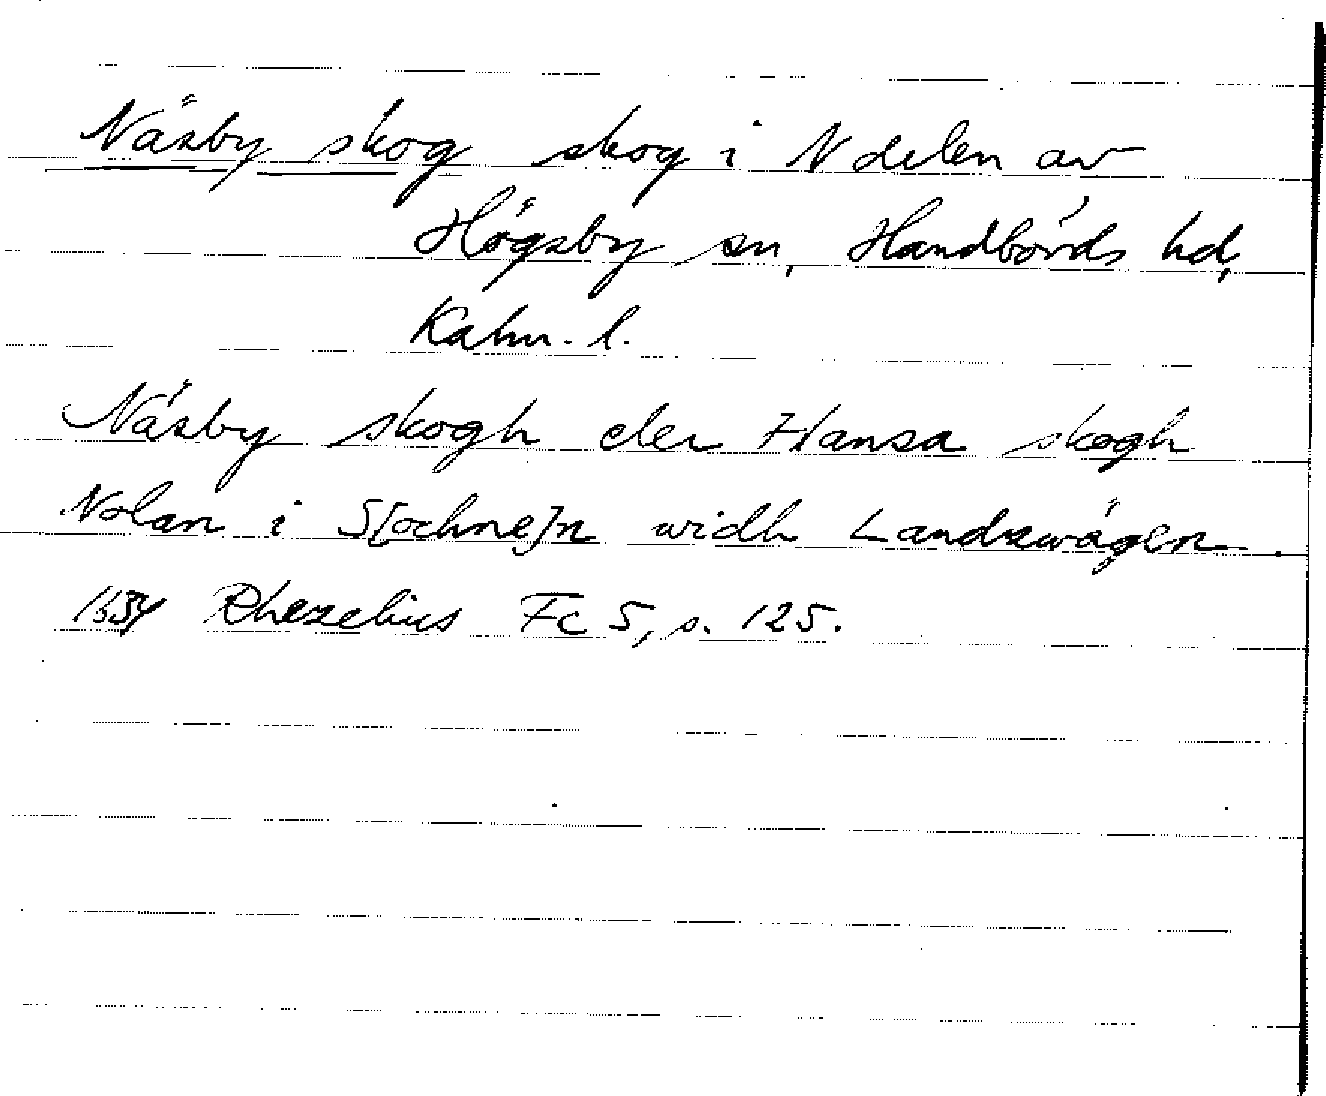 Näsby skog skog i N delen av
Högsby sn, Handbörds hd,
Kalm. l.
Näsby skogh eler Hansa skogh
Nolan i S[ochne]n widh Landzwägen.
Rhezelius Fc 5, s. 125.